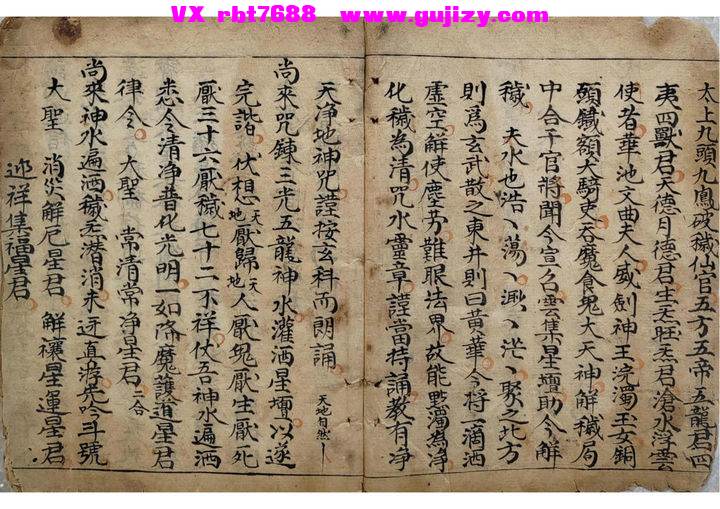 VX rbt7688 www.gujizy.com
太上九頭九鳳破穢仙官五方五帝五龍君四
夷四獸君天德月德君生炁旺炁君滄水浮雲
使者華池文曲夫人威劍神王浣濁玉女銅
頭鐵額大騎吏吞魔食鬼大天神解穢局
中合干官將聞今宣名雲集星壇助令解
穢 夫水也浩丶蕩丶渺丶茫丶聚之北方
則爲玄武散之東井則曰黄華今将一滴洒
虚空觧使塵勞難眼法界故能點濁為净
化穢為清咒水靈章謹當持誦教有净
天净地神咒謹按玄科而朗誦 天地自然
尚來咒鍊三光五龍神水灌洒星壇以遂
完諧 伏想天厭地厭歸天地人厭鬼厭生厭死
厭三十六厭穢七十二不祥仗吾神水遍洒
悉令清净普化光明一如降魔護道星君
律令 大聖 常清常净星君 二合
尚來神水遍洒穢炁潜消未迓真
吟斗號
大聖 消災解厄星君 解禳星運星君
迎祥集福星君